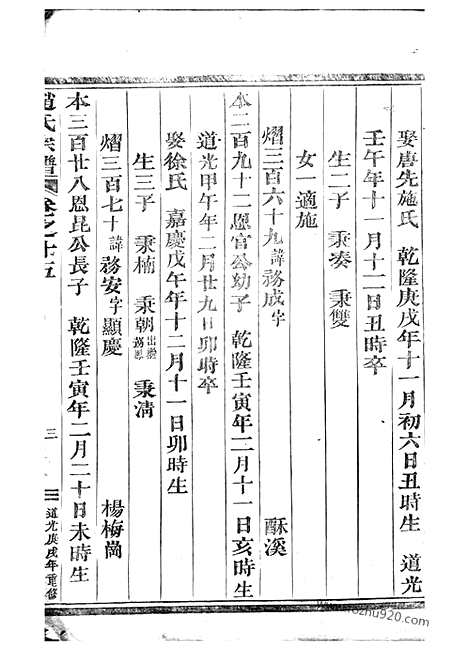 娶唐先施氏 乾隆庚戌年十一月初六日丑時生 道光
壬午年十一月十二日丑時卒
生二子 秉湊 秉雙
女一適施
熠三百六十九諱務成字 酥溪
本二百九十二恩官公幼子 乾隆壬寅年二月十一日亥時生
道光甲午年二月廿九日卯時卒
娶徐氏 嘉慶戊午年十二月十一日卯時生
生三子 秉楠 秉朝出繼務恩 秉清
熠三百七十諱務安字顯慶 楊梅崗
本三百廿八恩昆公長子 乾隆壬寅年二月二十日未時生
趙氏宗譜 卷之十五 三 道光庚戌年重修
www.yozhu920.com